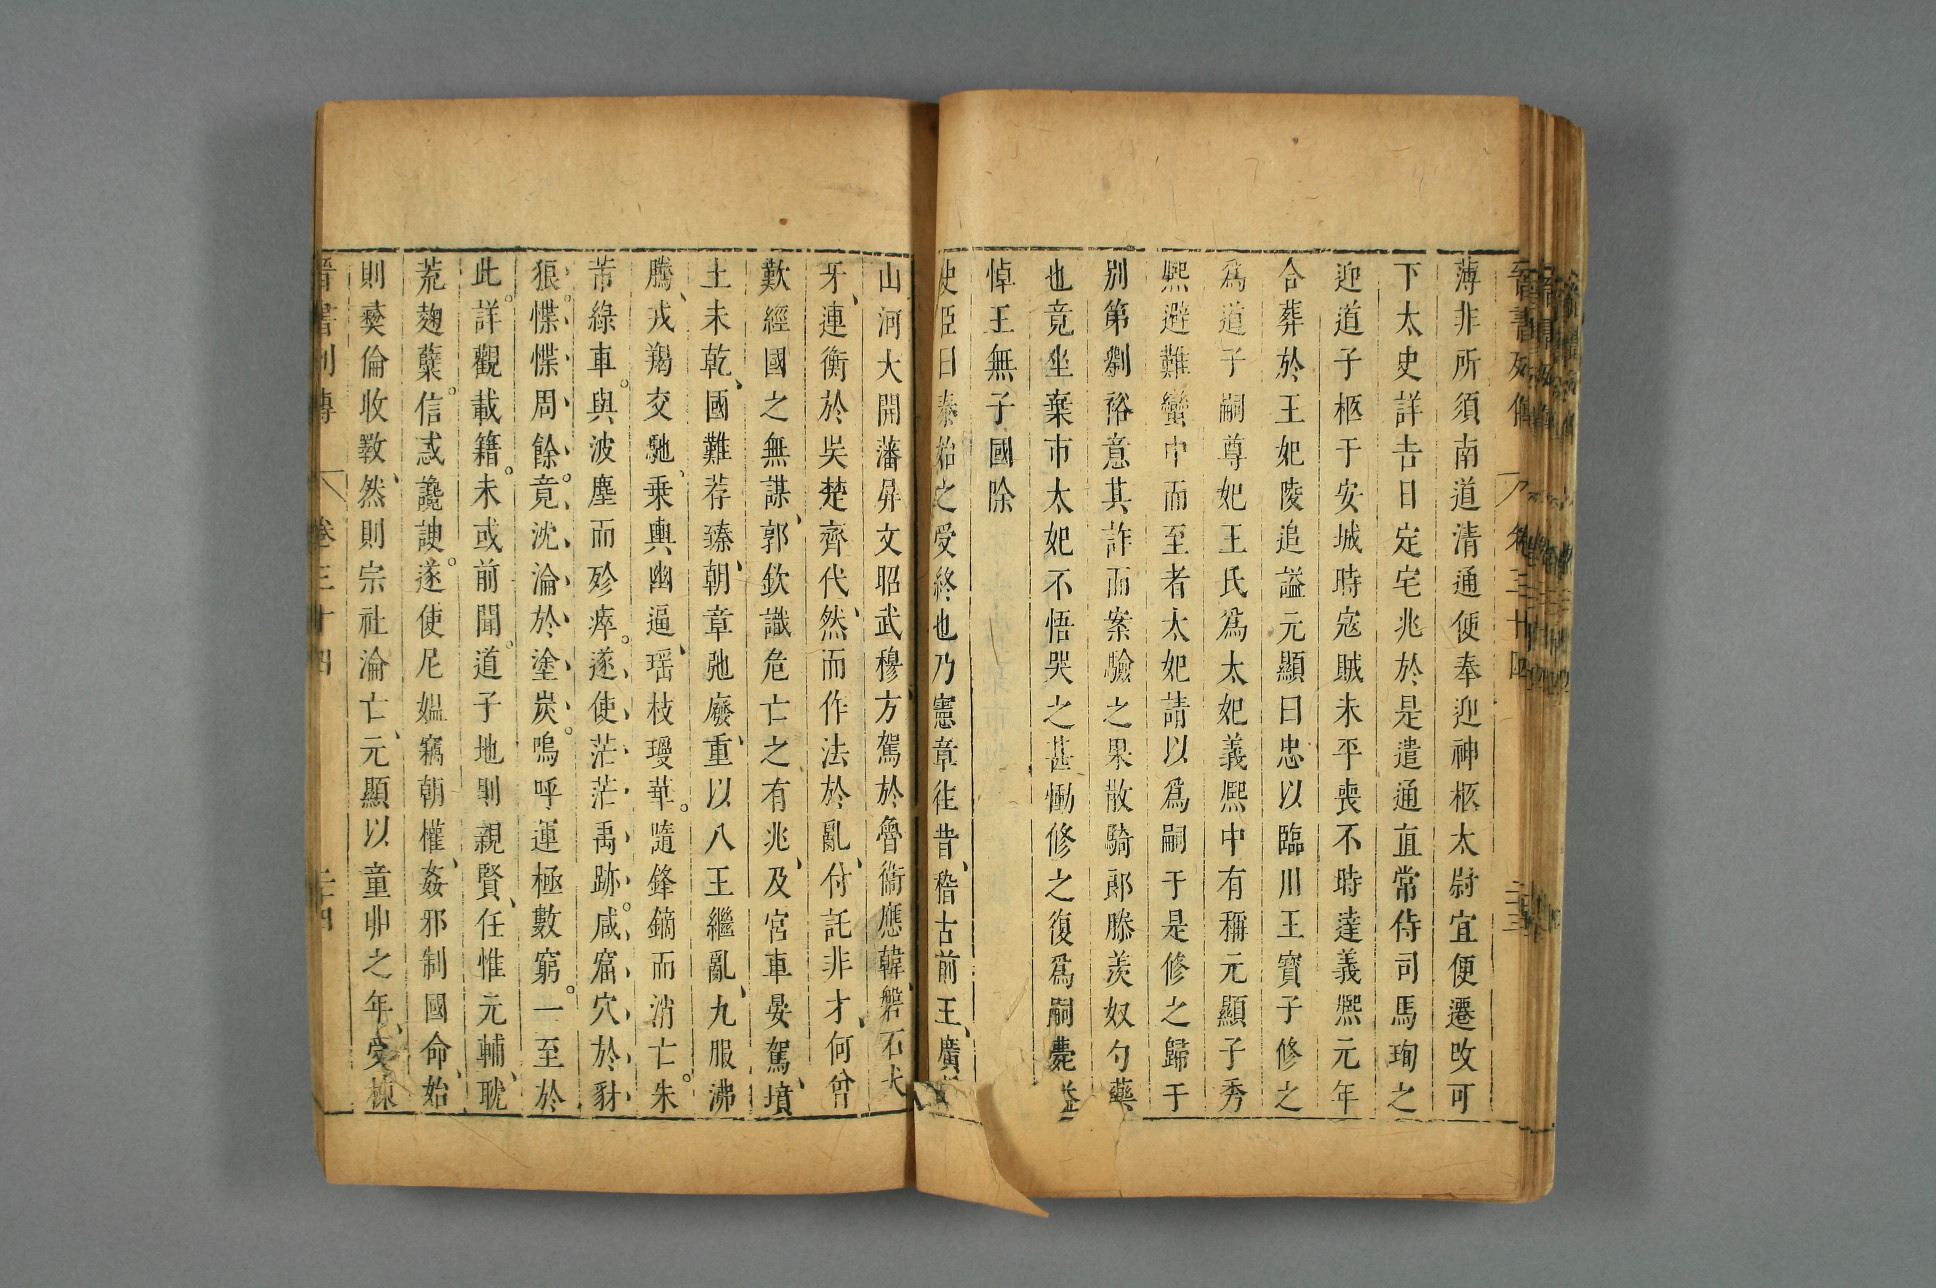 晉書列傳 卷三十四 二十三
薄非所須南道清通便奉迎神柩太尉宜便遷攺可
下太史詳吉日定宅兆於是遣通直常侍司馬珣之
迎道子柩于安城時寇賊未平喪不時達義熙元年
合葬於王妃陵追謚元顯曰忠以臨川王寶子修之
爲道子嗣尊妃王氏爲太妃義熙中有稱元顯子秀
熙避難蠻中而至者太妃請以爲嗣于是修之歸于
別第劉裕意其詐而案驗之果散騎郎滕羨奴勺藥
也竟坐棄市太妃不悟哭之甚慟修之復爲嗣薨謚
悼王無子國除
史臣曰泰始之受終也乃憲章徃昔、稽古前王、廣
山河大開藩屏文昭武穆、方駕於魯衞應韓、磐石犬
牙、連衡於吳楚齊代、然而作法於亂、付託非才、何曾
歎經國之無謀、郭欽識危亡之有兆、及宮車晏駕、墳
土未乾、國難荐臻、朝章弛廢、重以八王繼亂、九服沸
騰、戎羯交馳、乗輿幽逼、瑶枝瓊華。隨鋒鏑而消亡。朱
芾綠車。與波塵而殄瘁。遂使茫茫禹跡。咸窟穴於豺
狼。惵惵周餘。竟沈淪於塗炭。嗚呼運極數窮。一至於
此。詳觀載籍。未或前聞。道子地則親賢、任惟元輔、耽
荒麴蘖。信惑讒諛。遂使尼媼竊朝權、姦邪制國命、始
則彜倫收斁、然則宗社淪亡、元顯以童丱之年、受棟
晉書列傳 卷三十四 二十四